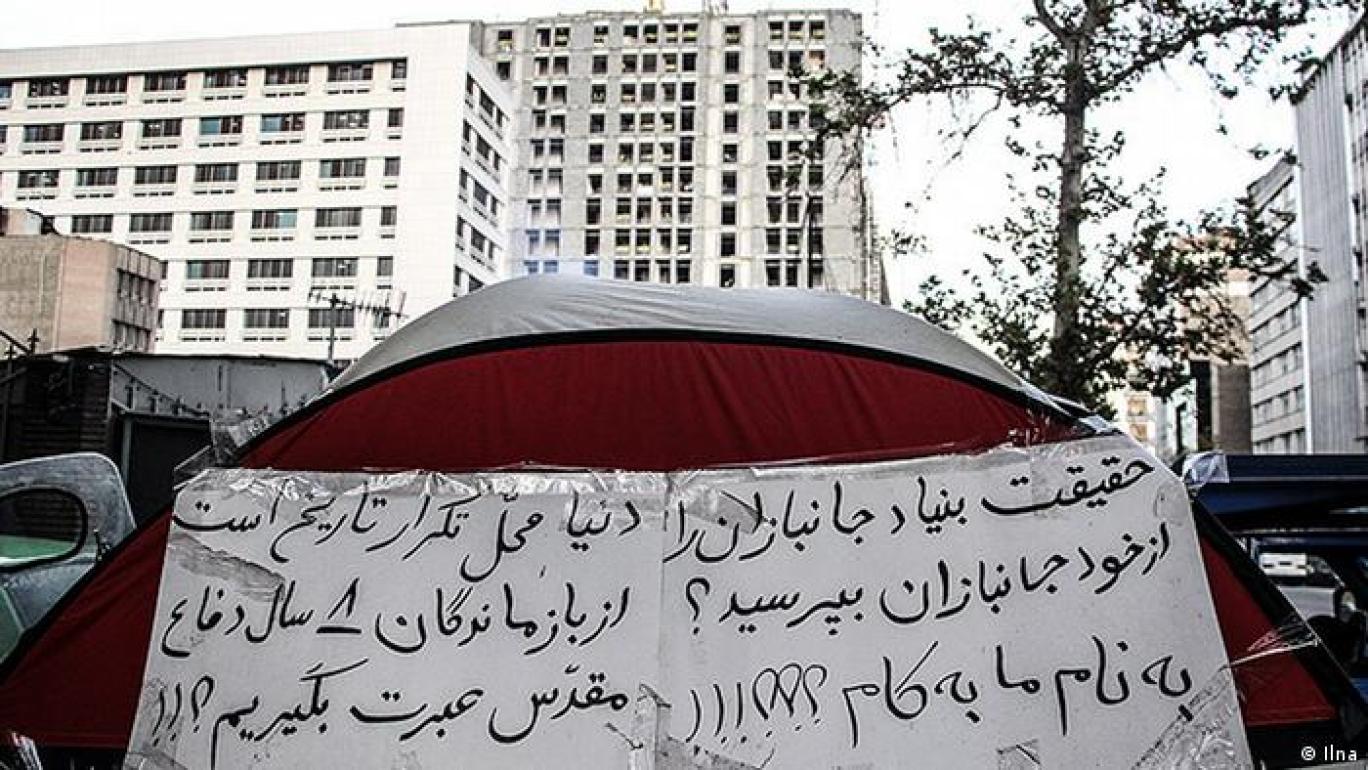 حقیقت بنیاد جانبازان را
از خود جانبازان بپرسید؟
به نام ما به کام ؟؟؟؟!!!!
دنیا محلّ تکرار تاریخ است
از بازماندگان ۸ سال دفاع
مقدّس عبرت بگیریم؟!!
© Ilna